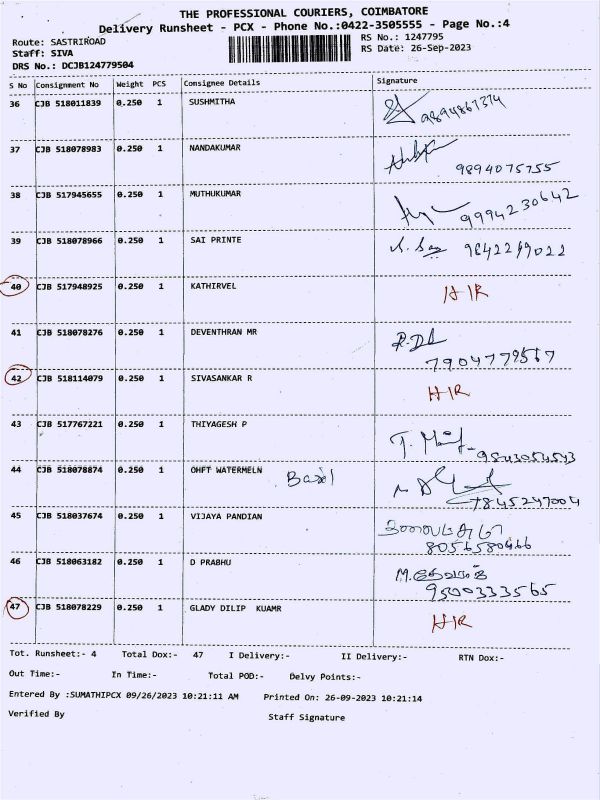 THE PROFESSIONAL COURIERS, COIMBATORE
Delivery Runsheet - PCX - Phone No.:0422-3505555 - Page No.:4
Route: SASTRIROAD RS No.: 1247795
Staff: SIVA RS Date: 26-Sep-2023
DRS No.: DCJB124779504
S No Consignment No Weight PCS Consignee Details Signature
36 CJB 518011839 0.250 1 SUSHMITHA 9894867374
37 CJB 518078983 0.250 1 NANDAKUMAR 9894075755
38 CJB 517945655 0.250 1 MUTHUKUMAR 9994230642
39 CJB 518078966 0.250 1 SAI PRINTE 9842219022
40 CJB 517948925 0.250 1 KATHIRVEL HIR
41 CJB 518078276 0.250 1 DEVENTHRAN MR 7904779567
42 CJB 518114079 0.250 1 SIVASANKAR R HIR
43 CJB 517767221 0.250 1 THIYAGESH P 9543054543
44 CJB 518078874 0.250 1 OHFT WATERMELN 7845247004
45 CJB 518037674 0.250 1 VIJAYA PANDIAN 8056580466
46 CJB 518063182 0.250 1 D PRABHU 9500333565
47 CJB 518078229 0.250 1 GLADY DILIP KUAMR HIR
Tot. Runsheet:- 4 Total Dox:- 47 I Delivery:- II Delivery:- RTN Dox:-
Out Time:- In Time:- Total POD:- Delvy Points:-
Entered By :SUMATHIPCX 09/26/2023 10:21:11 AM Printed On: 26-09-2023 10:21:14
Verified By Staff Signature